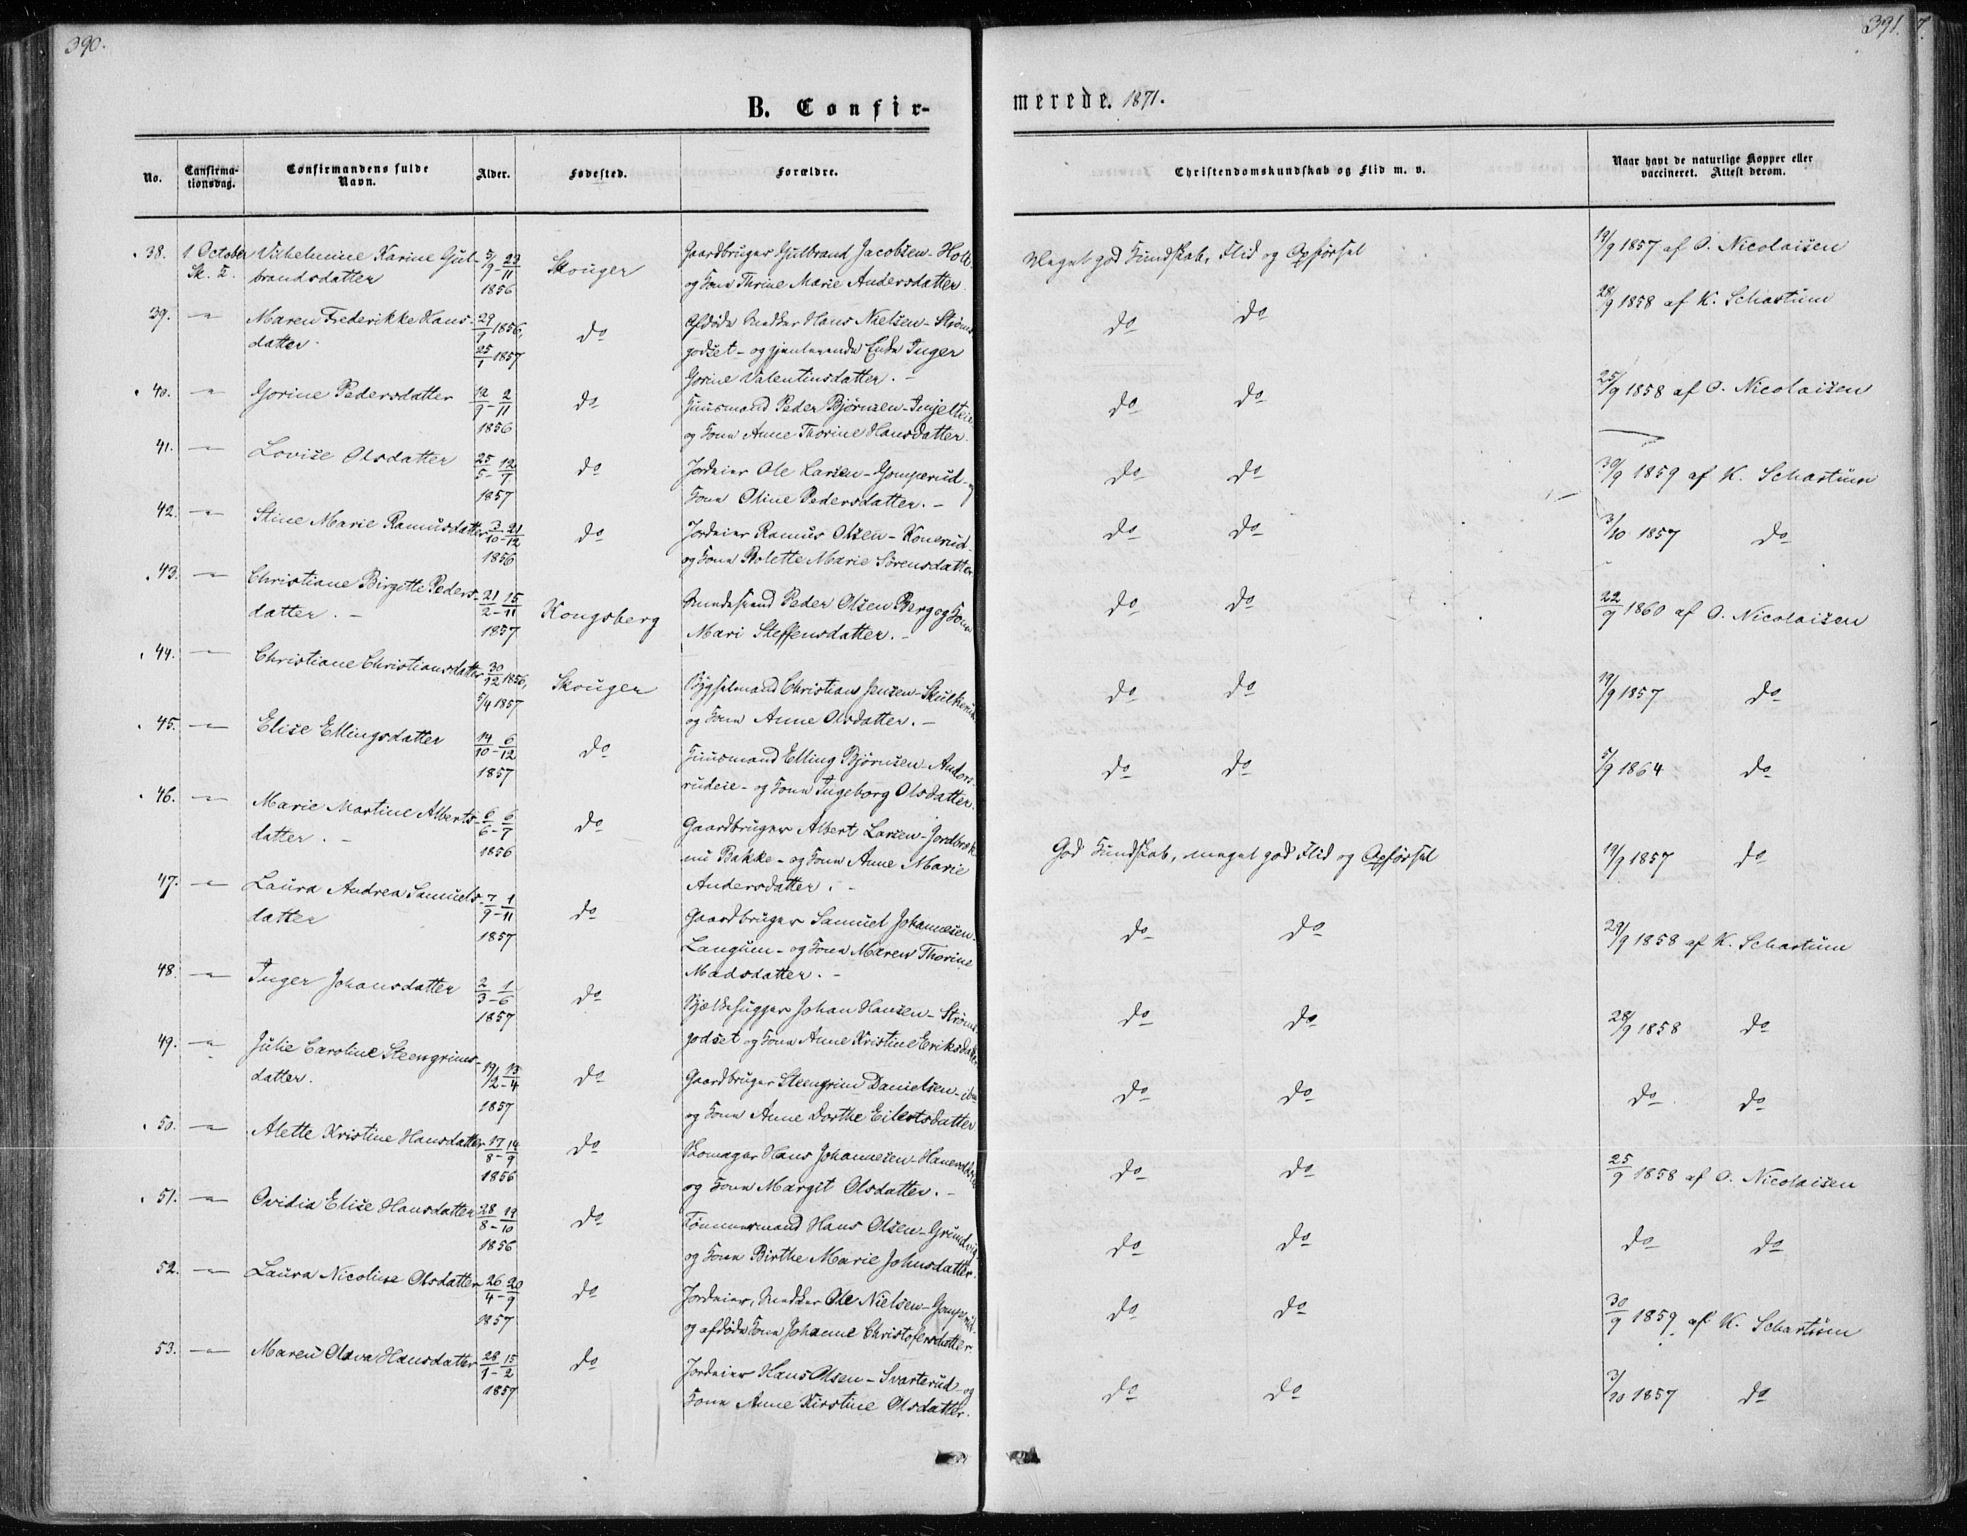 390.
391.
7.
B. Confir-
merede. 1871.
No.
Confirma-
tionsdag.
Confirmandens fulde
Navn.
Alder.
Fødested.
Forældre.
Christendomskundskab og Flid m. v.
Naar havt de naturlige Kopper eller
vaccineret. Attest derom.
38. 1 October Vilhelmine Karine Gul- 5/9 - 22/11 Skouger Gaardbruger Gulbrand Jacobsen - Holt Meget god Kundskab, Flid og Opførsel 19/9 1857 af O. Nicolaisen
Sk. K. brandsdatter 1856 og Kone Thrine Marie Andersdatter
39. - Maren Frederikke Hans- 29/9 1856, do Afdøde Snedker Hans Nielsen - Strøms do do 28/9 1858 af K. Schartum
datter. 25/1 1857 godset - og gjenlevende Enke Inger
Gorine Valentinsdatter. -
40. - Gorine Pedersdatter 12/9 - 2/11 do Huusmand Peder Bjørnsen - do do 25/9 1858 af O. Nicolaisen
1856 og Kone Anne Thorine Hansdatter.
41. - Lovise Olsdatter 25/5 - 12/7 do Jordeier Ole Larsen - Gomperud - og do do 30/9 1859 af K. Schartum
1857 Kone Oline Pedersdatter. -
42. - Stine Marie Ramusdatter 3/10 - 21/12 do Jordeier Ramus Olsen - Konerud - do do 3/10 1857 do
1856 og Kone Bolette Marie Sørensdatter
43. - Christiane Birgitte Peders- 21/2 - 15/11 Kongsberg Peder Olsen Berg og Kone do do 22/9 1860 af O. Nicolaisen
datter. - 1857 Mari Steffensdatter. -
44. - Christiane Christiansdatter 30/12 1856, Skouger Bygselmand Christian Jensen - Skulkerud do do 19/9 1857 do
5/4 1857 og Kone Anne Olsdatter. -
45. - Elise Ellingsdatter 14/10 - 6/12 do Huusmand Elling Bjørnsen - Anders- do do 5/9 1864 do
1857 rudeie - og Kone Ingeborg Olsdatter.
46. - Marie Martine Alberts- 6/6 - 6/7 do Gaardbruger Albert Larsen - Jordbræk God Kundskab, meget god Flid og Opførsel 19/9 1857 do
datter. - 1856 nu Bakke - og Kone Anne Marie
Andersdatter. -
47. - Laura Andrea Samuels- 7/9 - 1/11 do Gaardbruger Samuel Johannesen - do do 29/9 1858 af K. Schartum
datter 1857 Langum - og Kone Maren Thorine
Madsdatter. -
48. - Inger Johansdatter 2/3 - 1/6 do Bjælkehugger Johan Hansen - Strøms do do 28/9 1858 do
1857 godset og Kone Anne Kristine Eriksdatter
49. - Julie Caroline Steengrims- 19/2 - 13/4 do Gaardbruger Steengrim Danielsen - do do do do
datter. 1857 og Kone Anne Dorthe Eilertsdatter
50. - Alette Kristine Hansdatter 17/8 - 14/9 do Skomager Hans Johannesen - do do 25/9 1858 af O. Nicolaisen
1856 og Kone Margit Olsdatter. -
51. - Ovidia Elise Hansdatter 28/8 - 19/10 do Tømmermand Hans Olsen - Grundvig do do do do
1856 og Kone Birthe Marie Johnsdatter.
52. - Laura Nicoline Olsdatter 26/4 - 20/9 do Jordeier, Snedker Ole Nielsen - Gomperud do do 30/9 1859 af K. Schartum
1857 og afdøde Kone Johanne Christofersdatter
53. - Maren Olava Hansdatter 28/1 - 15/2 do Jordeier Hans Olsen - Svarterud - og do do 3/10 1857 do
1857 Kone Anne Kirstine Olsdatter.